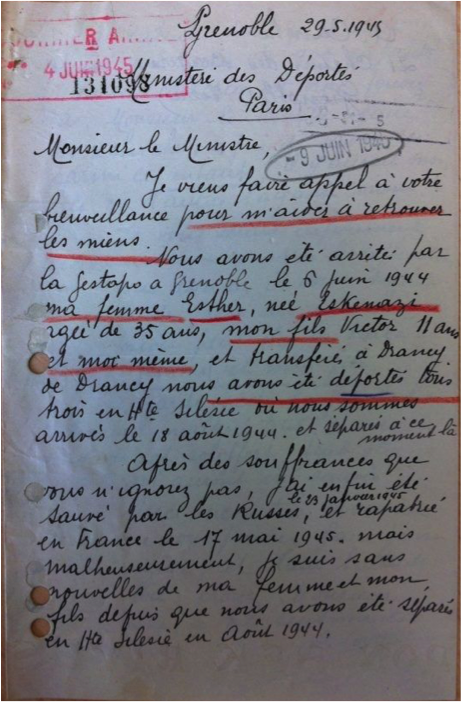 Grenoble 29-5-1945
COURRIER
4 JUIN 1945
131098
Ministère des Déportés
Paris
- 9 JUIN 1945
Monsieur le Ministre,
Je viens faire appel à votre
bienveillance pour m'aider à retrouver
les miens.
Nous avons été arrêté par
la Gestapo a Grenoble le 6 Juin 1944
ma femme Esther, neé Eskenazi
agée de 35 ans, mon fils Victor 11 ans
et moi même, et transférés à Drancy.
de Drancy nous avons été déportés tous
trois en Hte Silésie où nous sommes
arrivés le 18 août 1944. et séparés à ce
moment là
Après des souffrances que
vous n'ignorez pas, j'ai enfin été
le 23 Janvier 1945
sauvé par les Russes, et rapatrié
en France le 17 mai 1945. mais
malheureusement, je suis sans
nouvelles de ma femme et mon
fils depuis que nous avons été séparés
en Hte Silésie en Août 1944.